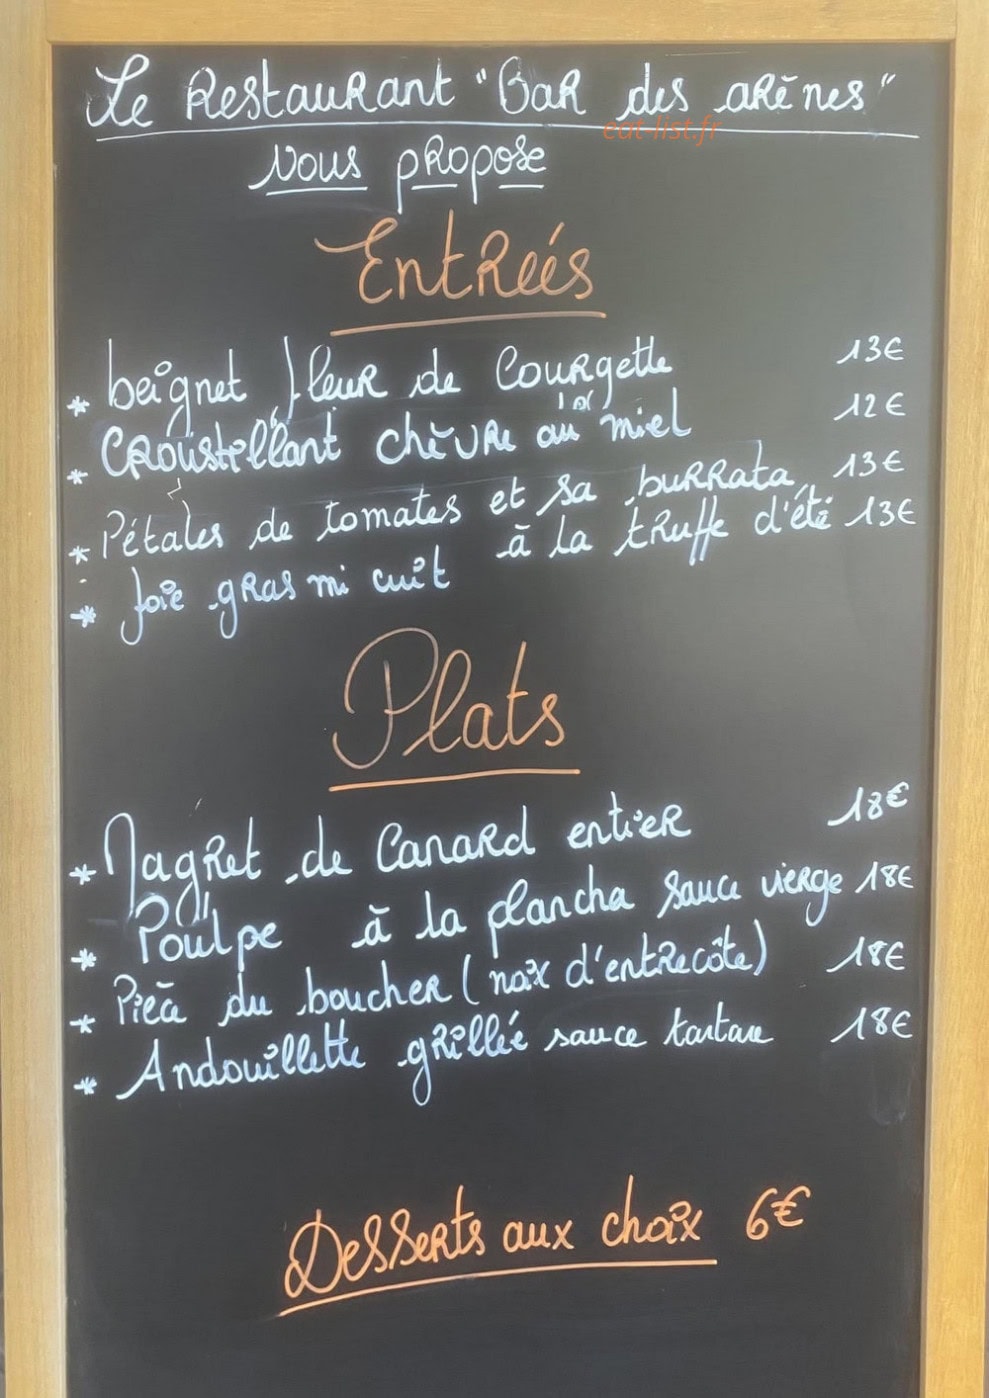 Le Restaurant "Bar des arènes"
eat-list.fr
vous propose
Entrées
* beignet fleur de Courgette 13€
* Croustillant chèvre au miel 12€
* Pétales de tomates et sa burrata 13€
* foie gras mi cuit à la truffe d'été 13€
Plats
* Magret de Canard entier 18€
* Poulpe à la plancha sauce vierge 18€
* Pièce du boucher (noix d'entrecôte) 18€
* Andouillette grillée sauce tartare 18€
Desserts aux choix 6€